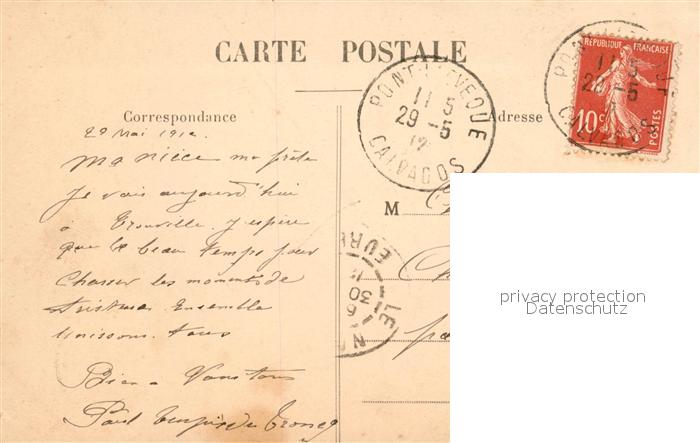 CARTE POSTALE
Correspondance
Adresse
REPUBLIQUE FRANCAISE
10c
POSTES
PONT-L'EVEQUE
11 5
29 -5
12
CALVADOS
29 Mai 1912
Ma nièce ma
Je vais aujourd'hui
à Trouville. J'espère
que le beau temps pour
Chasser les moments de
tristesse Ensemble
Unissons tous
Bien à Vous tous
Paul
M
30
EURE
privacy protection
Datenschutz